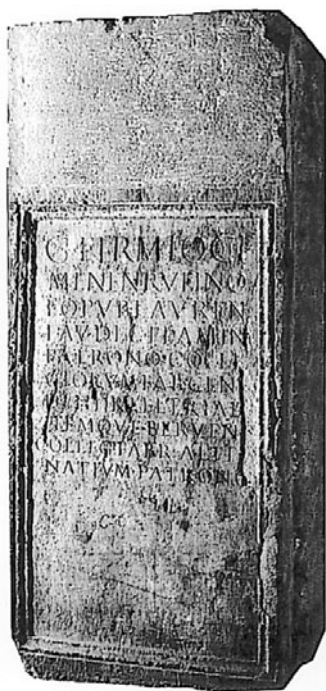 C FIRMIO C F
MENEN RVFINO
EQ PVBL LAVREN
LAV DEC FLAMIN
PATRONO COLLE
GIORVM FAB CEN
DENDR FELTRIAE
ITEMQVE BERVEN
COLLEG FABR ALTI
NATIVM PATRONO